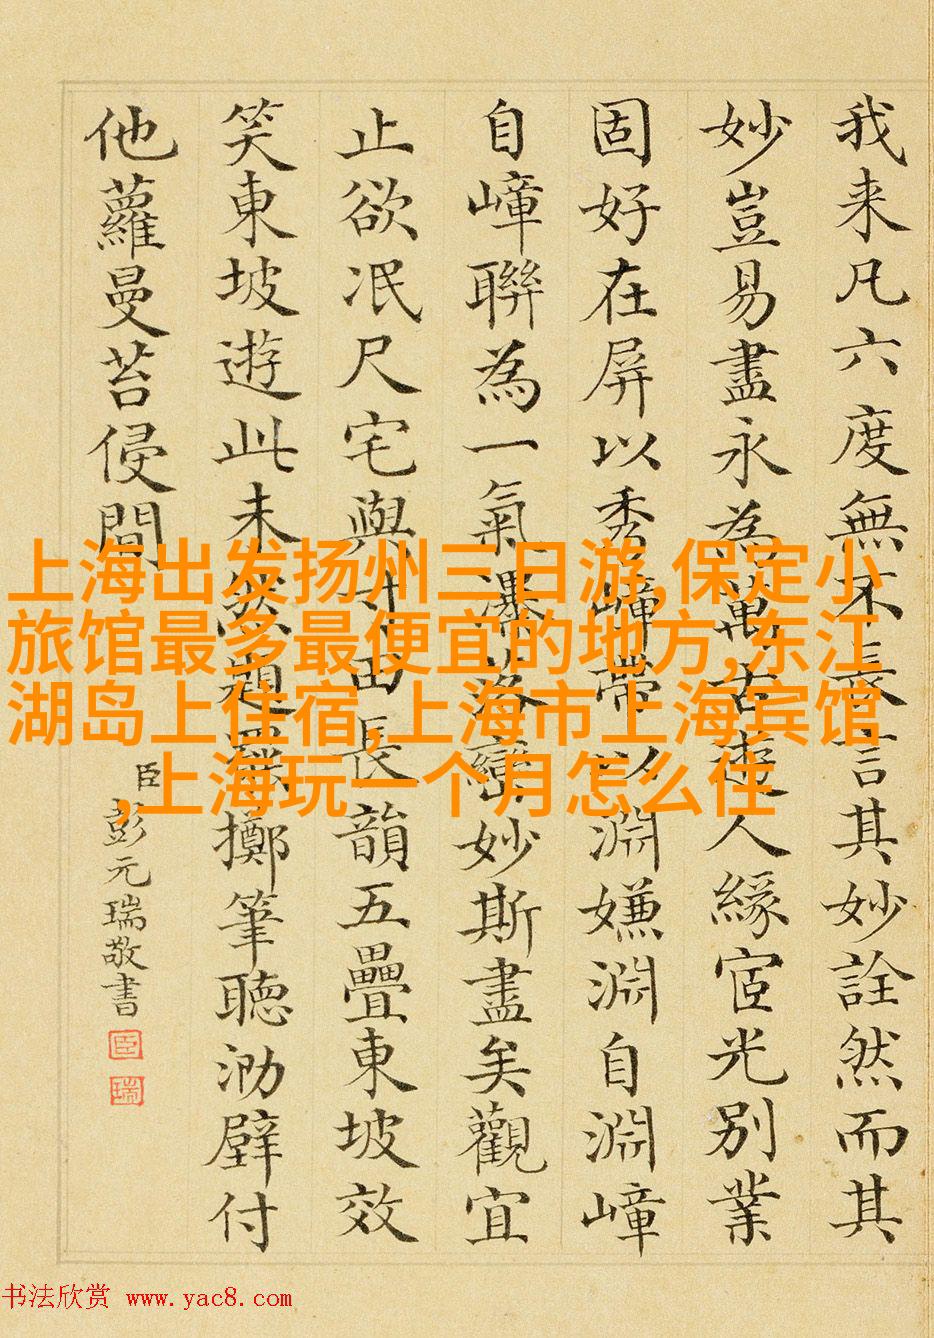 我来凡六度無不長言其妙詮然而其
妙豈易盡永為萬古人緣宧光別業
固好在屏以秀嶂帶以淵嫌淵自淵嶂
自嶂聯為一氣瀑落巒妙斯盡矣觀宜
止欲泯尺宅與寸田長韻五疊東坡效
笑東坡遊此未然題擲筆聽泐壁付
他蘿曼苔侵間
臣彭元瑞敬書
臣
瑞
上海出发扬州三日游,保定小
旅馆最多最便宜的地方,东江
湖岛上住宿,上海市上海宾馆
,上海玩一个月怎么住
书法欣赏 www.yac8.com